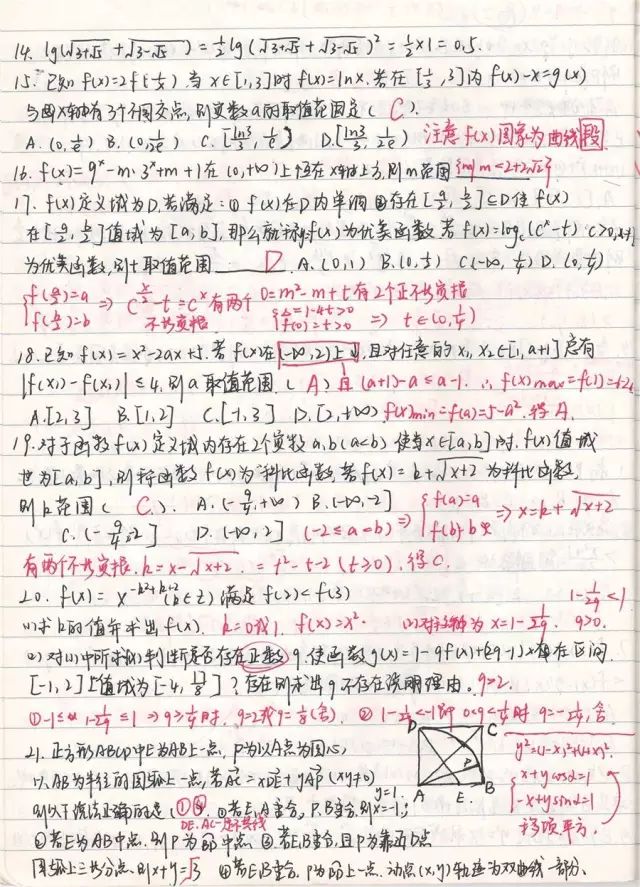 14. lg(√3+√5 + √3-√5) = ½lg(√3+√5 + √3-√5)² = ½×1 = 0.5.
15. 已知 f(x)=2f(1/x) 当 x∈[1,3]时 f(x)=lnx. 若在 [1/3,3]内 f(x)-x=g(x)
与x轴有3个不同交点, 则实数a的取值范围是( C ).
A. (0,1/e) B. (0,1/2e) C. [ln3/3,1/e) D.[ln3/3,1/2e) 注意f(x)图象为曲线段
16. f(x)=9^x-m·3^x+m+1在(0,+∞)上恒在x轴上方,则m范围{m|m<2+2√2}
17. f(x)定义域为D,若满足:①f(x)在D内单调②存在[a/2,b/2]⊆D使f(x)
在[a/2,b/2]值域为[a,b],那么就称y=f(x)为优美函数.若f(x)=log_c(c^x-t) c>0,c≠1
为优美函数,则t取值范围 D. A.(0,1) B.(0,½) C(-∞,¼) D.(0,¼)
{f(a/2)=a f(b/2)=b ⇒ c^(x/2)-t=c^x有两个不等实根 0=m²-m+t有2个正不等实根 {Δ=1-4t>0 f(0)=t>0 ⇒ t∈(0,¼)
18.已知f(x)=x²-2ax+5.若f(x)在(-∞,2)上↓,且对任意的x₁,x₂∈[1,a+1]总有
|f(x₁)-f(x₂)|≤4.则a取值范围( A ) 且(a+1)-a≤a-1. ∴f(x)max=f(1)=6-2a
A.[2,3] B.[1,2] C.[-1,3] D.[2,+∞) f(x)min=f(a)=5-a².得A.
19.对于函数f(x)定义域内存在2个实数a,b(a<b)使当x∈[a,b]时.f(x)值域
也为[a,b],则称函数f(x)为"科比函数.若f(x)=k+√x+2为科比函数,
则k范围( C ). A.(-9/4,+∞) B.(-∞,-2]
C.(-9/4,-2] D.(-∞,2] (-2≤a<b) ⇒ {f(a)=a f(b)=b ⇒ x=k+√x+2
有两个不等实根.k=x-√x+2. = t²-t-2 (t≥0).得C.
20. f(x)= x^(-k²+k+2)(k∈Z)满足f(2)<f(3)
(1)求k的值并求出f(x). k=0或1. f(x)=x². (2)对称轴为x=1-1/2q. 1-1/2q<1 q>0.
(2)对(1)中所求f(x)判断是否存在正数q.使函数g(x)=1-qf(x)+(2q-1)x在区间
[-1,2]上值域为[-4,17/8]?存在则求出q不存在说明理由。 q=2.
①-1≤1-1/2q≤1 ⇒ q≥¼时. q=2或q=⅛(舍). ②1-1/2q<-1即0<q<¼时 q=-1/24,舍
21. 正方形ABCD中E为AB上一点, P为以A点为圆心,
以AB为半径的圆弧上一点,若AC=xDE+yAP(xy≠0)
则以下说法正确的是(①④. ①若E,A重合,P.B重合.则x=-1;y=1.
DE.AC一定不共线
②若E为AB中点.则P为 中点 ③若E,B重合,且P为靠近D点
圆弧上三等分点.则x+y=√3 ④若E,B重合.P为 上一点.动点(x,y)轨迹为双曲线一部分.
D C
A E B P
y²=(1-x)²+(1+x)².
{x+ycosα=1
-x+ysinα=1
移项平方.